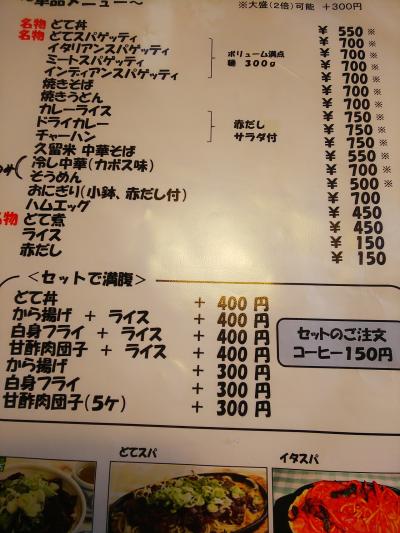 単品メニュー～
※大盛(2倍)可能 +300円
名物 どて丼 ¥ 550 ※
名物 どてスパゲッティ ¥ 700 ※
イタリアンスパゲッティ ¥ 700 ※
ミートスパゲッティ ¥ 700 ※
インディアンスパゲッティ ¥ 700 ※
ボリューム満点
麺 300g
焼きそば ¥ 700 ※
焼きうどん ¥ 700 ※
カレーライス ¥ 750 ※
ドライカレー ¥ 750 ※
チャーハン ¥ 750 ※
赤だし
サラダ付
久留米 中華そば ¥ 550 ※
冷し中華(カボス味) ¥ 700 ※
そうめん ¥ 500 ※
おにぎり(小鉢、赤だし付) ¥ 700
ハムエッグ ¥ 450
名物 どて煮 ¥ 450
ライス ¥ 150
赤だし ¥ 150
＜セットで満腹＞
どて丼 + 400 円
から揚げ + ライス + 400 円
白身フライ + ライス + 400 円
甘酢肉団子 + ライス + 400 円
から揚げ + 300 円
白身フライ + 300 円
甘酢肉団子(5ケ) + 300 円
セットのご注文
コーヒー150円
どてスパ
イタスパ